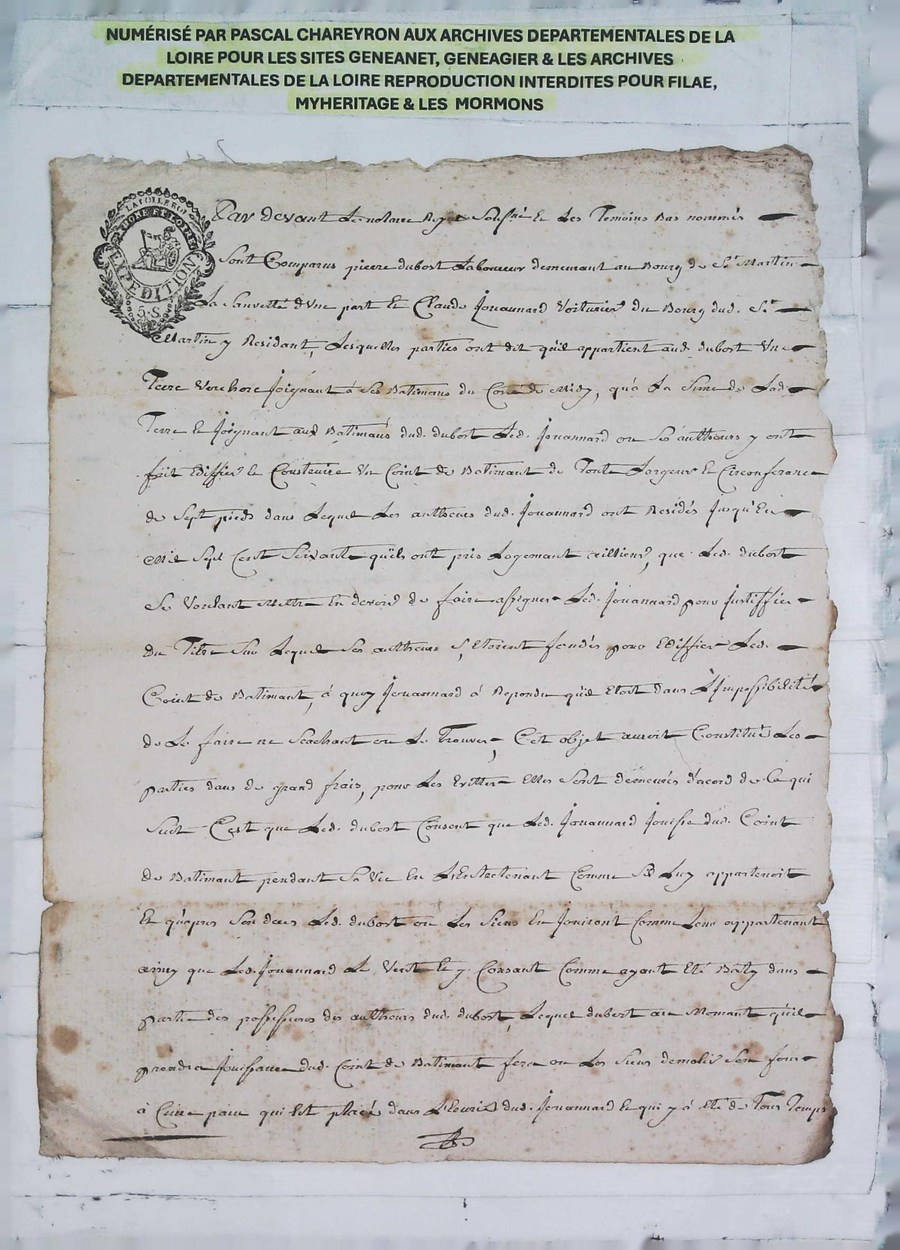 NUMÉRISÉ PAR PASCAL CHAREYRON AUX ARCHIVES DEPARTEMENTALES DE LA
LOIRE POUR LES SITES GENEANET, GENEAGIER & LES ARCHIVES
DEPARTEMENTALES DE LA LOIRE REPRODUCTION INTERDITES POUR FILAE,
MYHERITAGE & LES MORMONS
EXPEDITION
5.S
Par devant Le notaire Soussné Et Les Temoins Bas nommés
Sont Comparus pierre dubost Laboureur demeurant au Bourg de St Martin
La Sauveté d'Une part Et Claude Jouannard Voiturier du Bourg dud. St
Martin y Residant, Lesquelles parties ont dit qu'il appartient aud. dubost Une
Terre joignant à Ses Batimans du Coté de Midy, qu'a La Sime de Lad.
Terre Et Joignant aux Batimans dud. dubost Led. Jouannard ou Ses autheurs y ont
fait Ediffier Et Construire Un Coint de Batimant de Toute Largeur Et Circonferance
de Sept pieds dans Lequel Les autheurs dud. Jouannard ont Residés Jusqu'En
Mil Sept Cent Soixante qu'ils ont pris Logemant ailliens, que Led. dubost
Se Voulant Mettre En devoir de faire assigner Led. Jouannard pour Justiffier
Du Titre Sur Lequel Ses autheurs S'Etoient fondés pour Ediffier Led.
Coint de Batimant, à quoy Jouannard à Repondu qu'il Etoit dans L'Impossibilité
de Le faire ne Scachant ou Le Trouver, Cet objet auroit Constitué Les
parties dans de grand frais, pour Les Evitter Elles Sont demeurés d'acord de Ce qui
Suit C'est que Led. dubost Consent que Led. Jouannard Jouisse dud. Coint
de Batimant pendant Sa Vie En L'Entretenant Comme S'il Luy appartenoit
Et qu'apres Son deces Led. dubost ou Les Siens En Jouiront Comme Leur appartenant
ainsy que Led. Jouannard Le Veut Et y Consant Comme ayant Eté Baty dans
partie des possessions des autheurs dud. dubost, Lequel dubost au Momant qu'il
prendra Jouissance dud. Coint de Batimant fera ou Les Siens demolir Son four
à Cuire pain qui Est placé dans dud. Jouannard Et qui y à Eté de Tous Temps